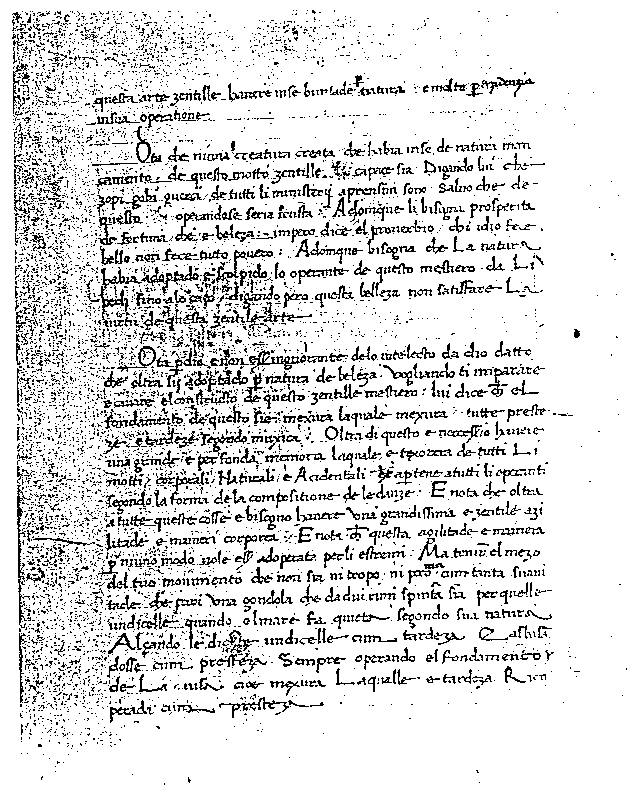 questa arte zentille havere inse bontade p natura e molto p
insua operatione
Ota che niuna creatura creata che habia inse de natura man
camento de questo motto zentille capace sia Digando lui che
zopi gobi guerzi de tutti li ministerij aprensivi sono Salvo che de
questo operandose seria Adomque li bisogna prosperita
de fortuna che e beleza impero dice el proverbio chi idio fece
bello non fece tutto povero Adomque bisogna che La natura
habia adoptado e scolpido lo operante de questo mestiero da Li
pedi fino alo capo digando pero questa belleza non satisfare La
virtu de questa zentile arte
Ota pdia e non ess ingnorante delo intelecto da dio datto
che oltra sij adoptado p natura de beleza Vogliando ti imparare
e cavare el construtto de questo zentille mestiero lui dice el
fondamento de questo sie mexura laquale mexura tutte preste
ze e tardeze segondo muxica Oltra di questo e necessario havere
una grande e perfonda memoria laquale e texorera de tutti Li
motti corporali Naturali e Acidentali che aptene a tutti li operanti
segondo la forma de la compositione de le danze E nota che oltra
a tutte queste cosse e bisogno havere Una grandissima e zentile azi
litade e maniera corporea E nota questa agilitade e maniera
p niuno modo vole ess adoperata per li estremi Ma tenir el mezo
del tuo movimento che non sia ni tropo ni poco ma cum tanta suavi
tade che pari Una gondola che da dui rimi spinta sia per quelle
undicelle quando el mare fa quieta segondo sua natura
Alçando le dicte undicelle cum tardeza E asbasan
dosse cum presteza Sempre operando el fondamento
de La cioe mexura Laqualle e tardeza Rico
perada cum presteza